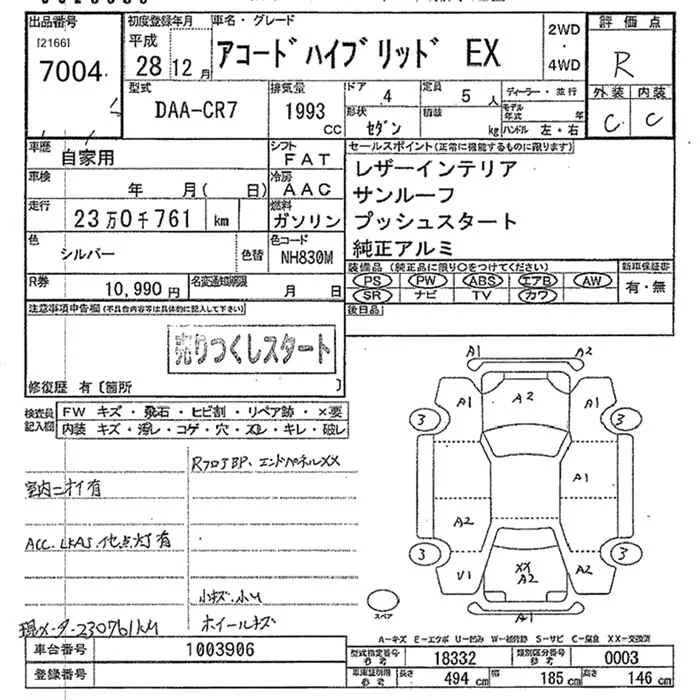 出品番号 初度登録年月 車名・グレード 評価点
[2166] 平成 アコードハイブリッド EX 2WD
7004 28 12月 ・ 4WD R
型式 排気量 ドア 4 定員 5人 ディーラー・並行 外装 内装
DAA-CR7 1993 CC 形状 セダン 積載 kg モデル年式 年 ハンドル 左・右 C C
車歴 自家用 シフト FAT セールスポイント(正常に機能するものに限ります)
車検 年 月( 日) 冷房 AAC レザーインテリア
サンルーフ
走行 23万0千761 km 燃料 ガソリン プッシュスタート
色 シルバー 色替 色コード NH830M 純正アルミ
R券 10,990円 名変通知期限 月 日 装備品(純正品に限り○をつけてください) 新車保証書
PS PW ABS エアB AW 有・無
SR ナビ TV カワ
注意事項申告欄(不具合内容等は具体的に記入して下さい) 後日品
売りつくしスタート
修復歴 有〔箇所 〕
検査員記入欄 FW キズ・飛石・ヒビ割・リペア跡・×要
内装 キズ・汚レ・コゲ・穴・スレ・キレ・破レ
RフロJBP、エンドパネルXX
室内ニオイ有
ACC、LKAS、他点灯有
小キズ、小U
現メーター230761KM ホイールキズ
A1 A2
A1 A2 A1
3 3
A1
A2
3 3
V1 XX A2 A2
A1
スペア
A-キズ E-エクボ U-凹み W-補修跡 S-サビ C-腐食 XX-交換済
車台番号 1003906 型式指定番号 参考 18332 類別区分番号 参考 0003
登録番号 車庫証明用 参考 長さ 494 cm 幅 185 cm 高さ 146 cm